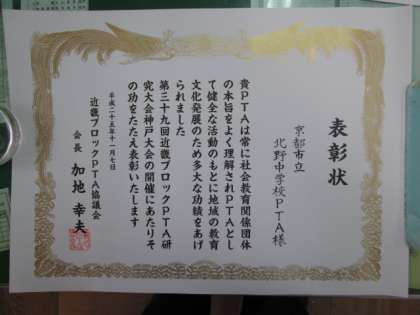 表彰状
京都市立
北野中学校PTA様
貴PTAは常に社会教育関係団体
の本旨をよく理解されPTAとし
て健全な活動のもとに地域の教育
文化発展のため多大な功績をあげ
られました
第三十九回近畿ブロックPTA研
究大会神戸大会の開催にあたりそ
の功をたたえ表彰いたします
平成二十五年十一月七日
近畿ブロックPTA協議会
会長 加地 幸夫